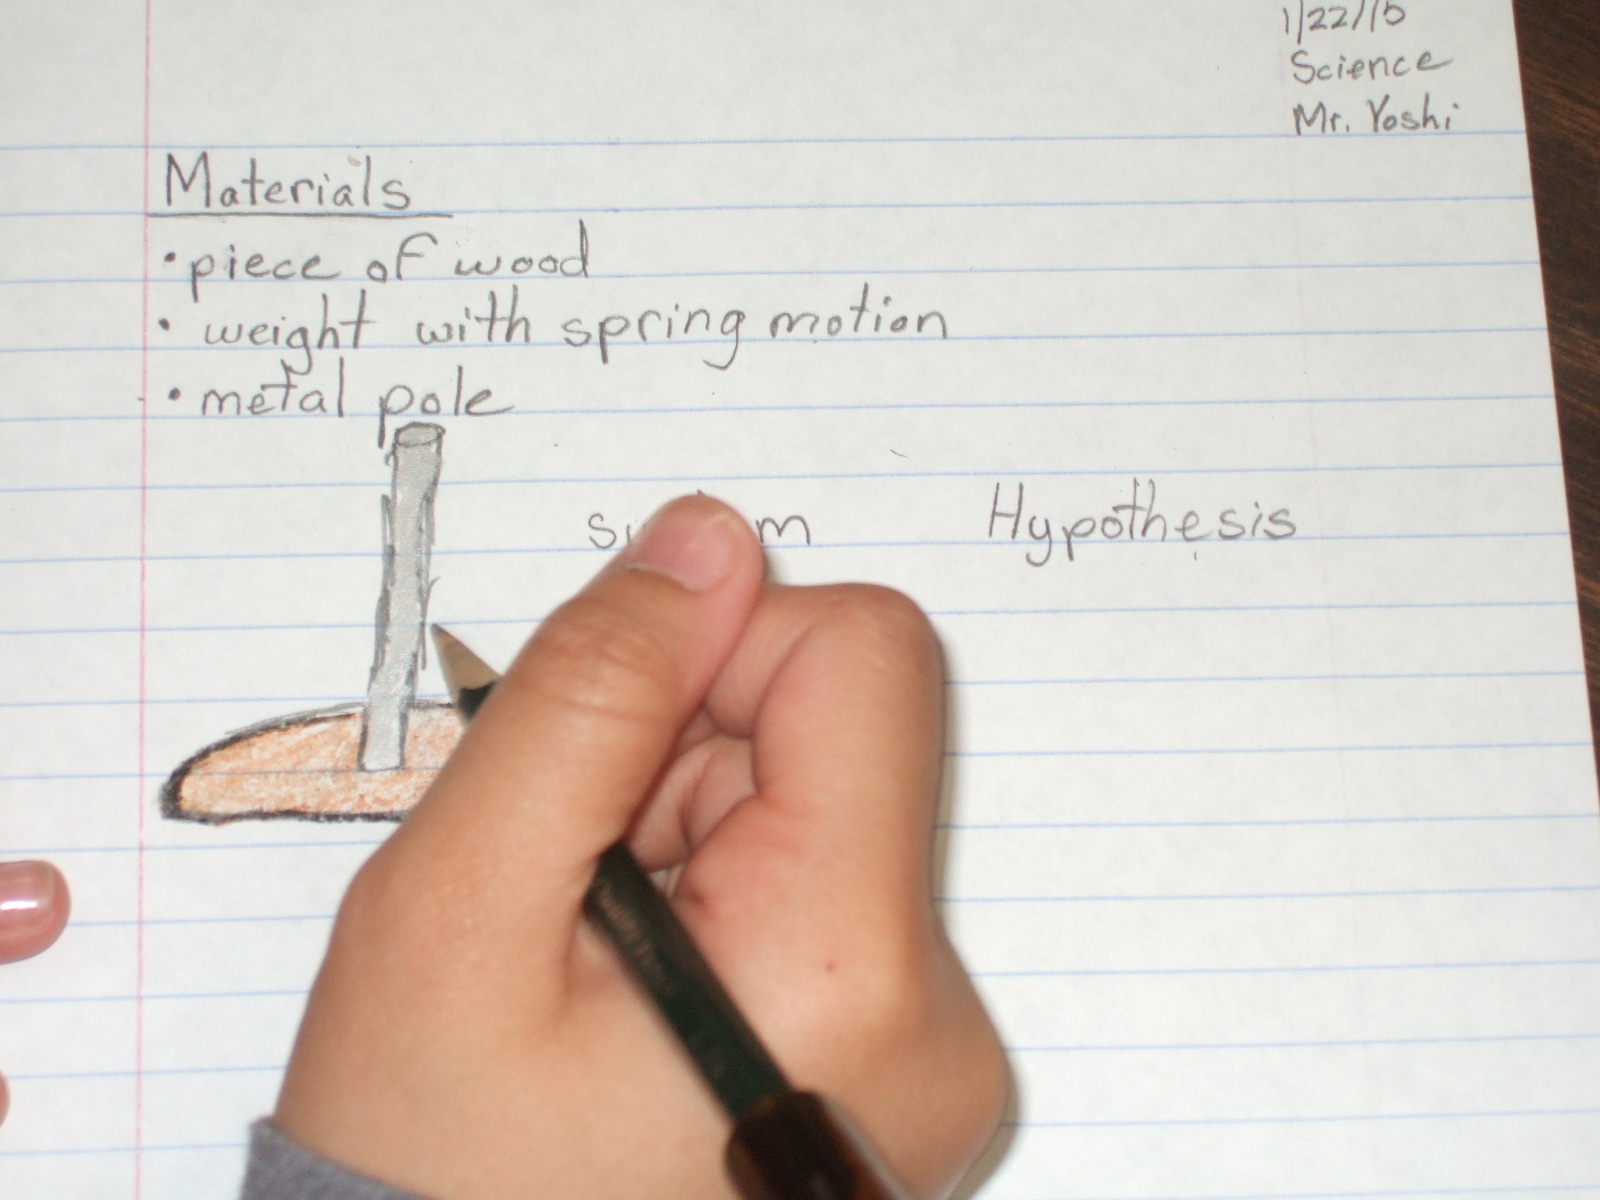 1/22/15
Science
Mr. Yoshi
Materials
• piece of wood
• weight with spring motion
• metal pole
Hypothesis